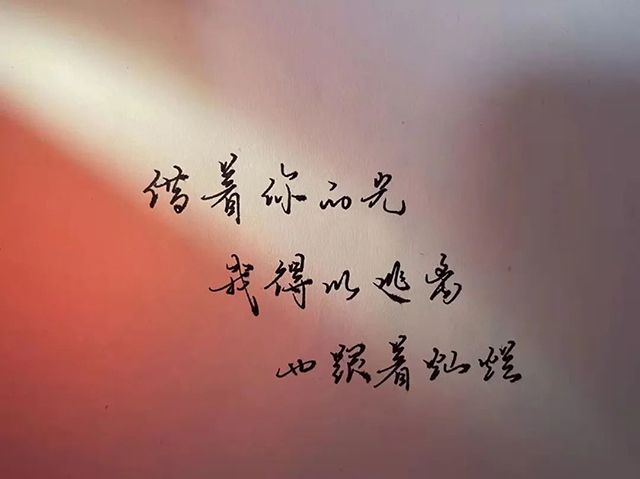 借着你的光
我得以逃离
也跟着灿烂